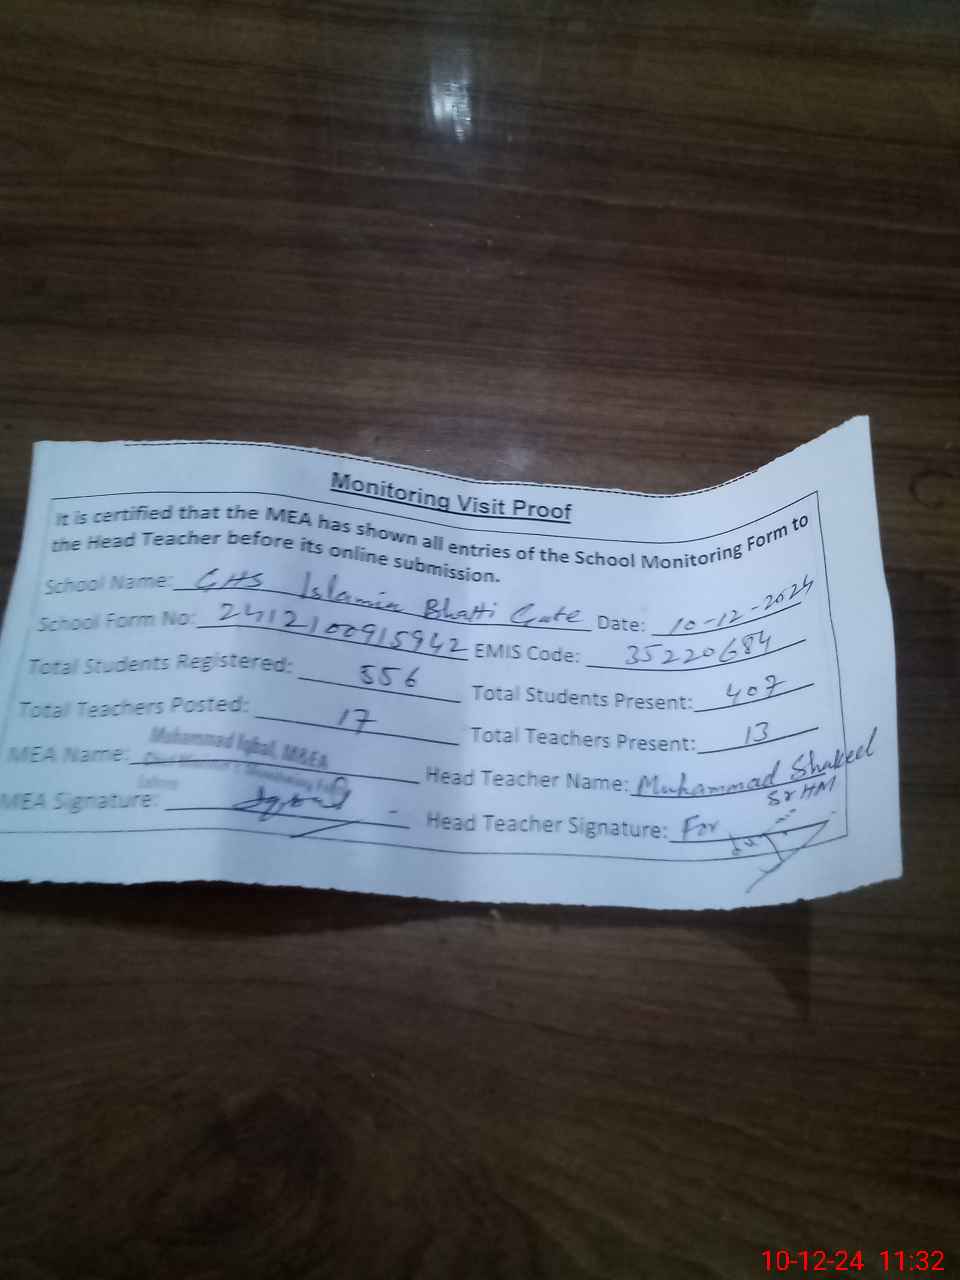 Monitoring Visit Proof
It is certified that the MEA has shown all entries of the School Monitoring Form to
the Head Teacher before its online submission.
School Name: GHS Islamia Bhatti Gate Date: 10-12-2024
School Form No: 2412100915942 EMIS Code: 35220684
Total Students Registered: 556 Total Students Present: 407
Total Teachers Posted: 17 Total Teachers Present: 13
MEA Name: Muhammad Iqbal, M&EA Head Teacher Name: Muhammad Shakeel
Lahore
Sr HM
MEA Signature: Iqbal Head Teacher Signature: For
10-12-24 11:32